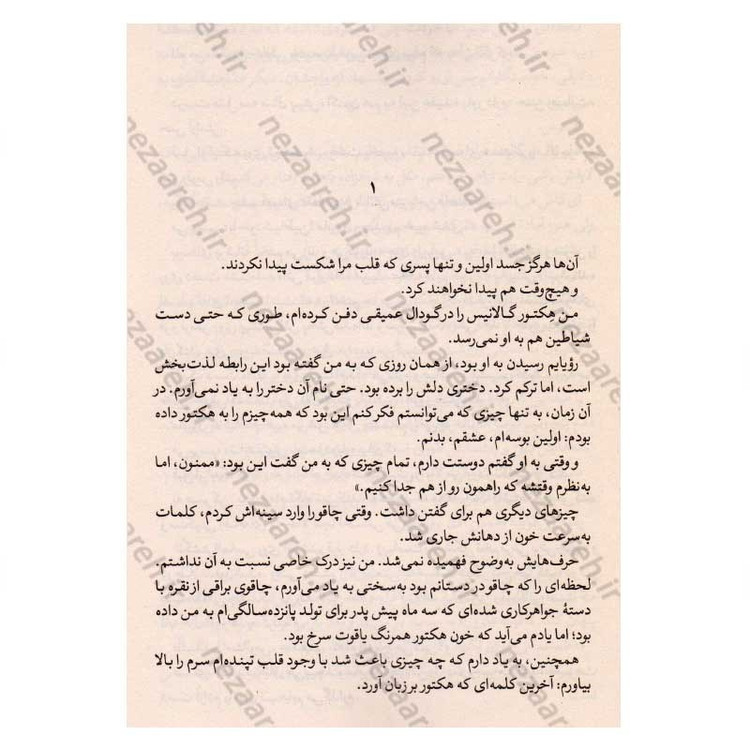 ۱
آن‌ها هرگز جسد اولین و تنها پسری که قلب مرا شکست پیدا نکردند.
و هیچ‌وقت هم پیدا نخواهند کرد.
من هکتور گالانیس را در گودال عمیقی دفن کرده‌ام، طوری که حتی دست
شیاطین هم به او نمی‌رسد.
رؤیایم رسیدن به او بود، از همان روزی که به من گفته بود این رابطه لذت‌بخش
است، اما ترکم کرد. دختری دلش را برده بود. حتی نام آن دختر را به یاد نمی‌آورم. در
آن زمان، به تنها چیزی که می‌توانستم فکر کنم این بود که همه‌چیزم را به هکتور داده
بودم: اولین بوسه‌ام، عشقم، بدنم.
و وقتی به او گفتم دوستت دارم، تمام چیزی که به من گفت این بود: «ممنون، اما
به‌نظرم وقتشه که راهمون رو از هم جدا کنیم.»
چیزهای دیگری هم برای گفتن داشت. وقتی چاقو را وارد سینه‌اش کردم، کلمات
به‌سرعت خون از دهانش جاری شد.
حرف‌هایش به‌وضوح فهمیده نمی‌شد. من نیز درک خاصی نسبت به آن نداشتم.
لحظه‌ای را که چاقو در دستانم بود به‌سختی به یاد می‌آورم، چاقوی براقی از نقره با
دستهٔ جواهرکاری شده‌ای که سه ماه پیش پدر برای تولد پانزده‌سالگی‌ام به من داده
بود؛ اما یادم می‌آید که خون هکتور همرنگ یاقوت سرخ بود.
همچنین، به یاد دارم که چه چیزی باعث شد با وجود قلب تپنده‌ام سرم را بالا
بیاورم: آخرین کلمه‌ای که هکتور بر زبان آورد.
nezaareh.ir
nezaareh.ir
nezaareh.ir
nezaareh.ir
nezaareh.ir
nezaareh.ir
nezaareh.ir
nezaareh.ir
nezaareh.ir
nezaareh.ir